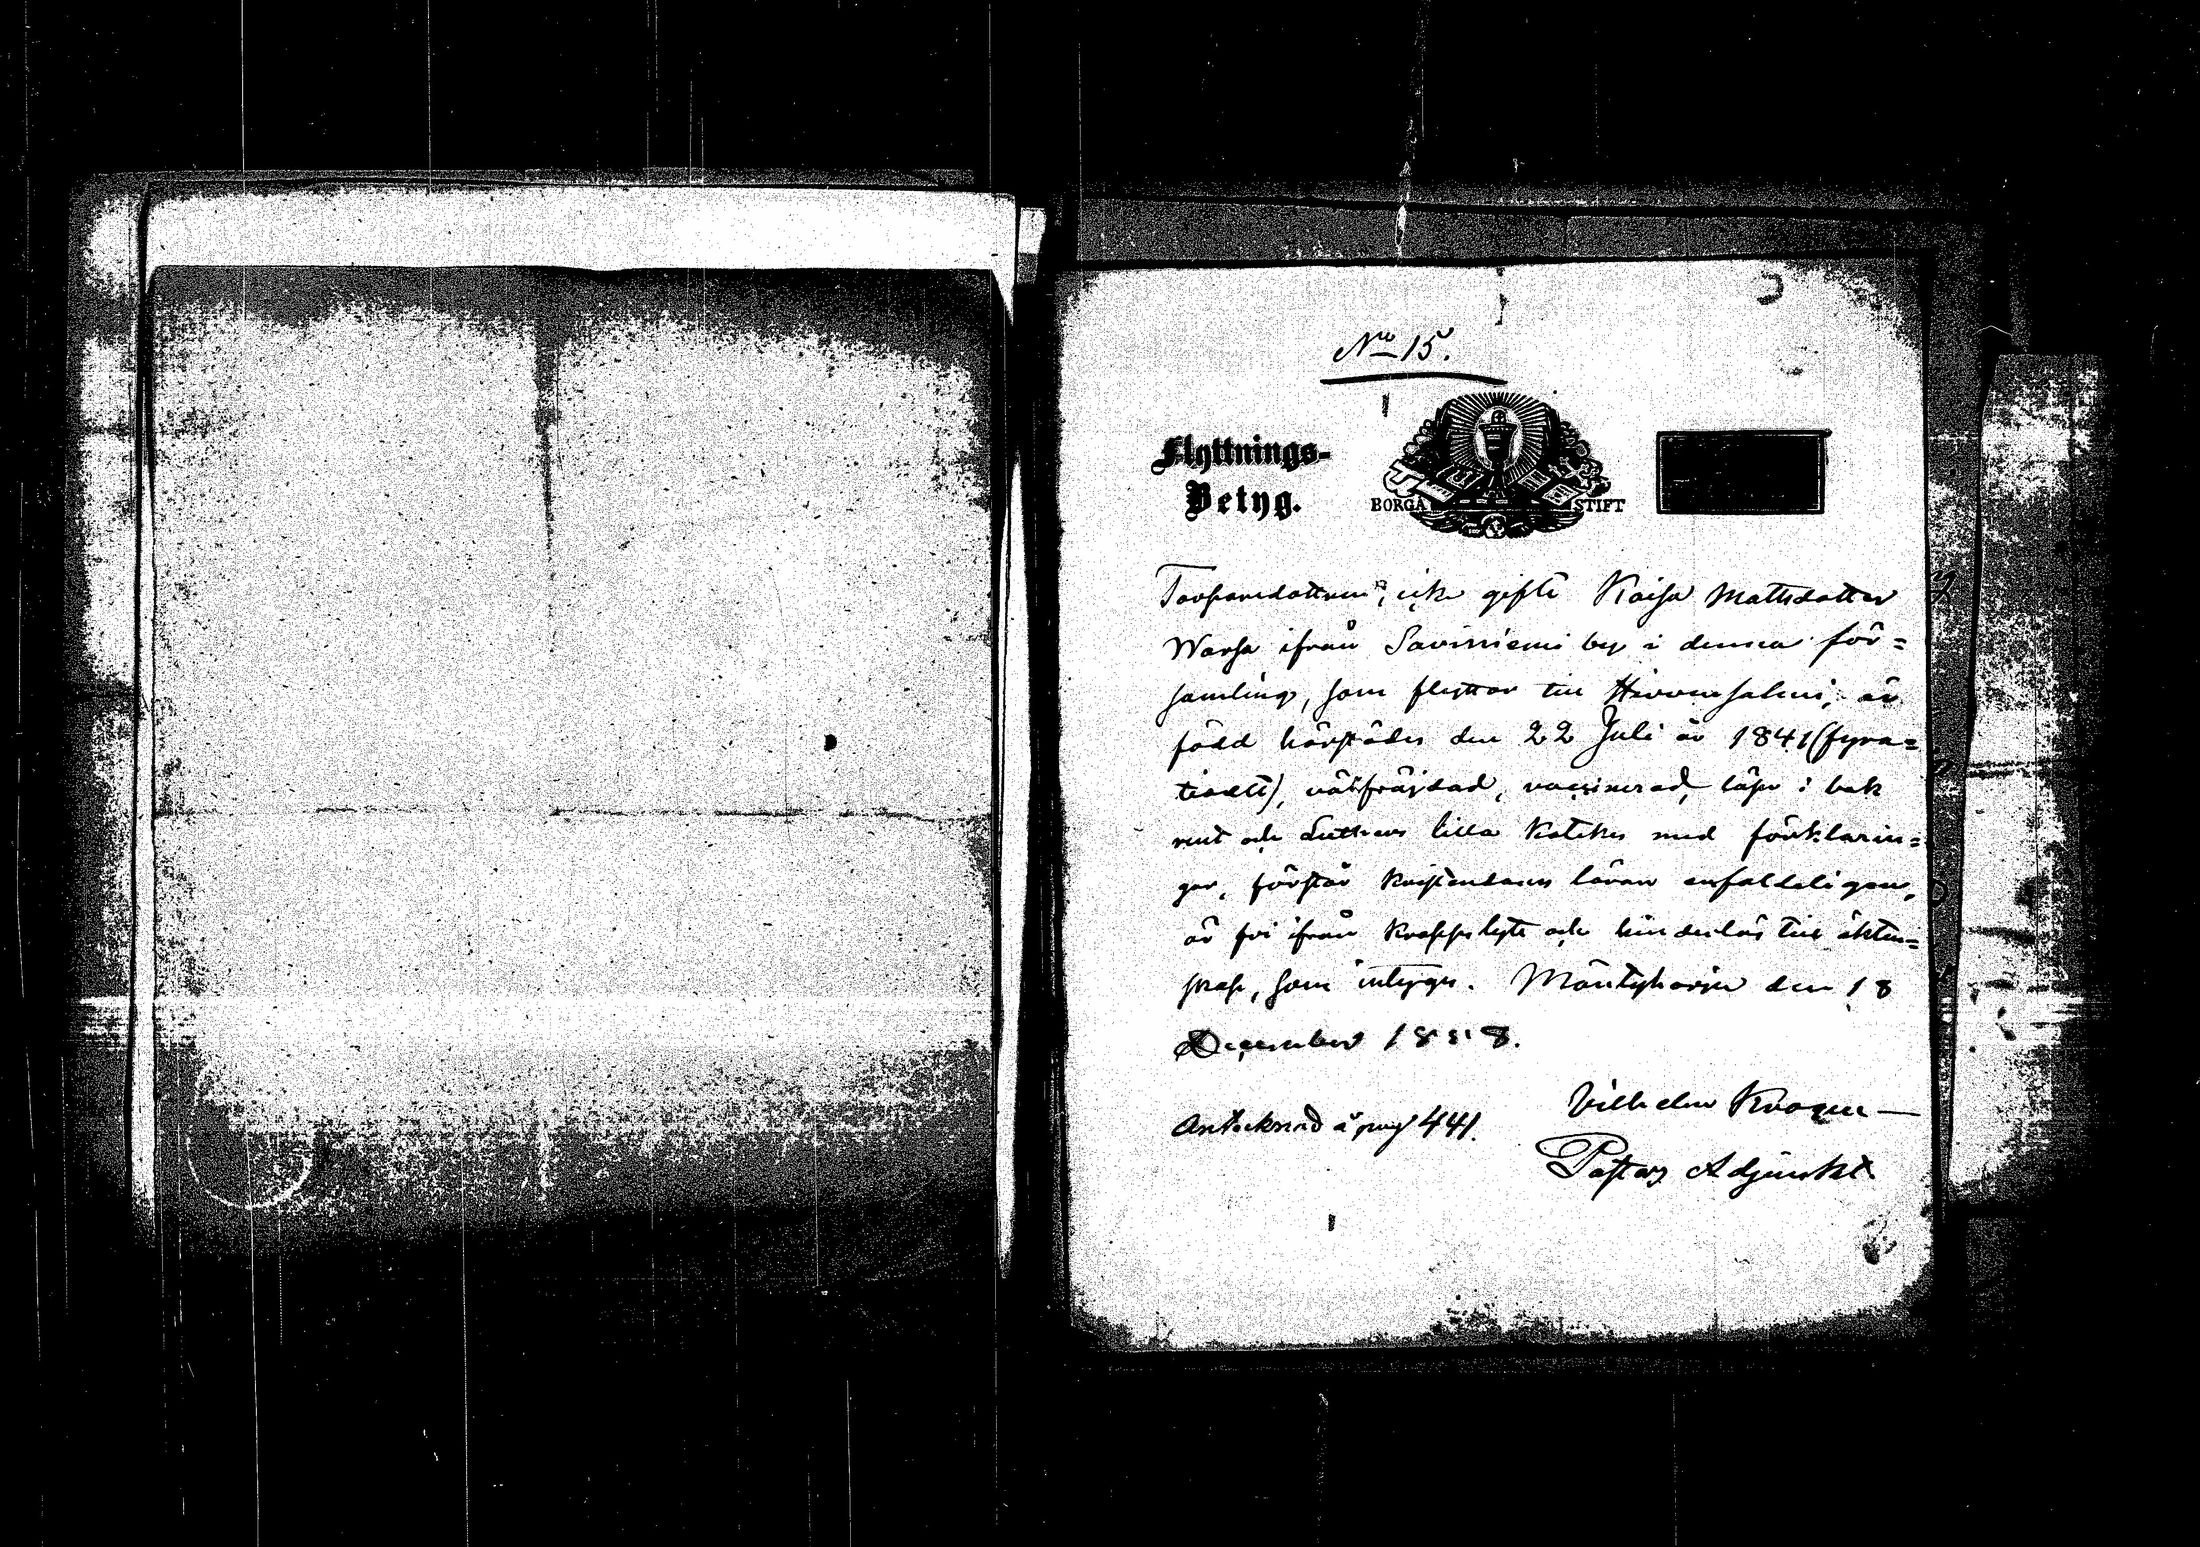 No 15.
Flyttnings-
Betyg.
BORGÅ STIFT
Torparedottren, icke gifte Kaisa Mattsdotter
Warsa ifrån Savisniemi by i denna för=
samling, som flyttar till Hirvensalmi, är
född härstädes den 22 Juli år 1841 (fyra=
tioett), välfräjdad, vaccinerad, läser i bok
rent och Luthers lilla Katekes med förklarin=
gar, förstår kristendoms läran enfaldeligen,
är fri ifrån kroppslyte och hinderlös till äkten=
skap, som intygas. Mäntyharju den 18
December 1888.
Antecknad å pag 441.
Vilhelm
Pastors Adjunkt